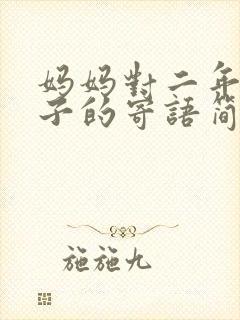 妈妈對二年
子的寄語简
施施九